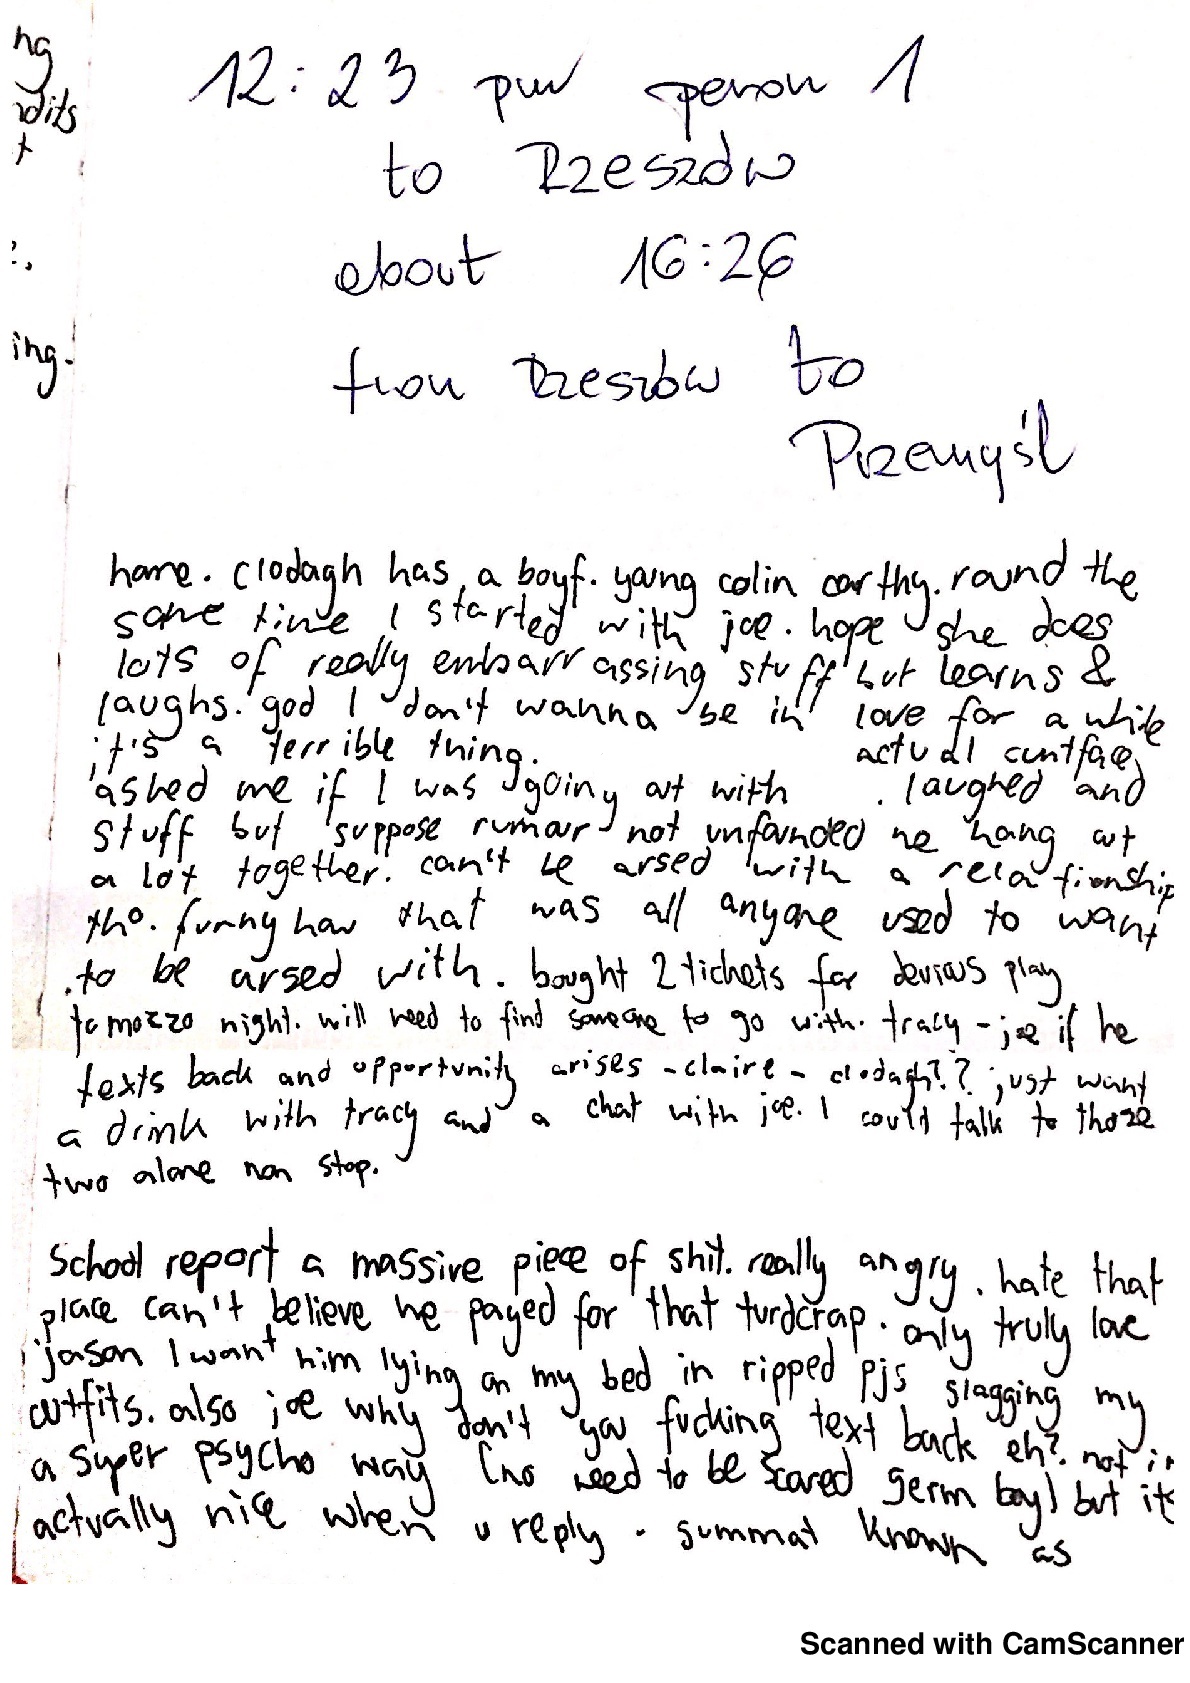 ng
dits
t
ing.
12:23 pm peron 1
to Rzeszów
about 16:26
from Rzeszów to
Przemyśl
home. clodagh has a boyf. young colin carthy. round the
same time I started with joe. hope she does
lots of really embarrassing stuff but learns &
laughs. god I don't wanna be in love for a while
it's a terrible thing. actual cuntface
asked me if I was going out with . laughed and
stuff but suppose rumour not unfounded we hang out
a lot together. can't be arsed with a relationship
tho. funny how that was all anyone used to want
to be arsed with. bought 2 tickets for devious play
tomozzo night. will need to find someone to go with. tracy - joe if he
texts back and opportunity arises - claire - clodagh?? just want
a drink with tracy and a chat with joe. I could talk to those
two alone non stop.
School report a massive piece of shit. really angry. hate that
place can't believe we payed for that turdcrap. only truly love
jason I want him lying on my bed in ripped pjs slagging my
outfits. also joe why don't you fucking text back eh? not in
a super psycho way (no need to be scared germ boy) but its
actually nice when u reply. summat known as
Scanned with CamScanner